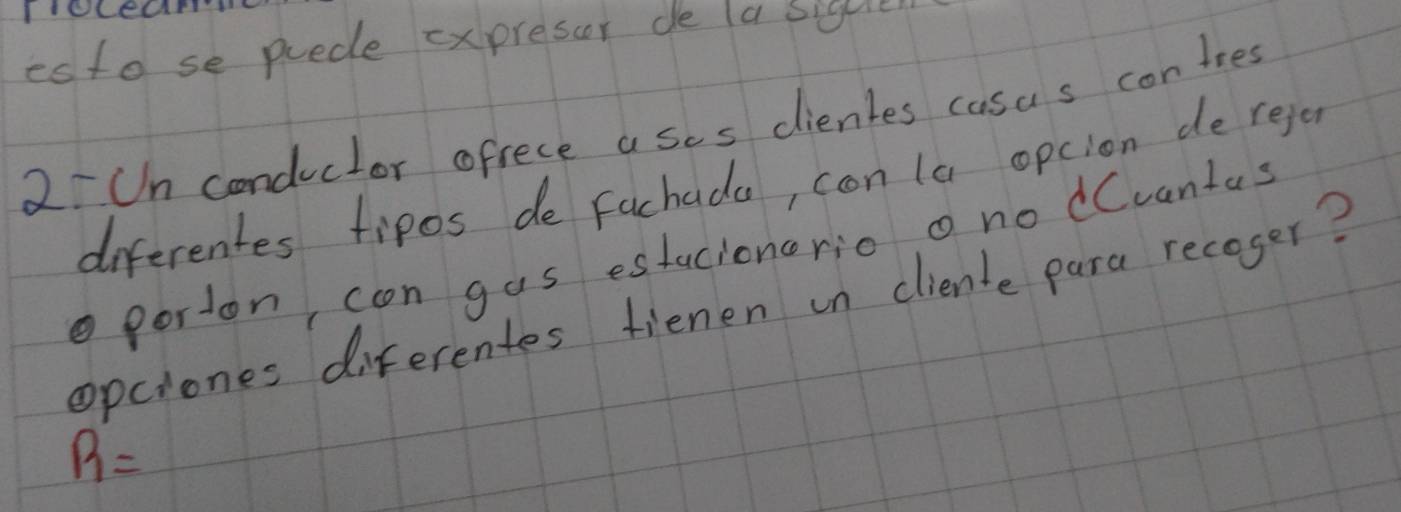 esto se puede expresar de la
2- Un conductor ofrece a sus clientes casas con tres
diferentes tipos de fachada, con la opcion de reja
o porton, con gas estacionario o no ¿Cuantas
opciones diferentes tienen un cliente para recoger?
R=